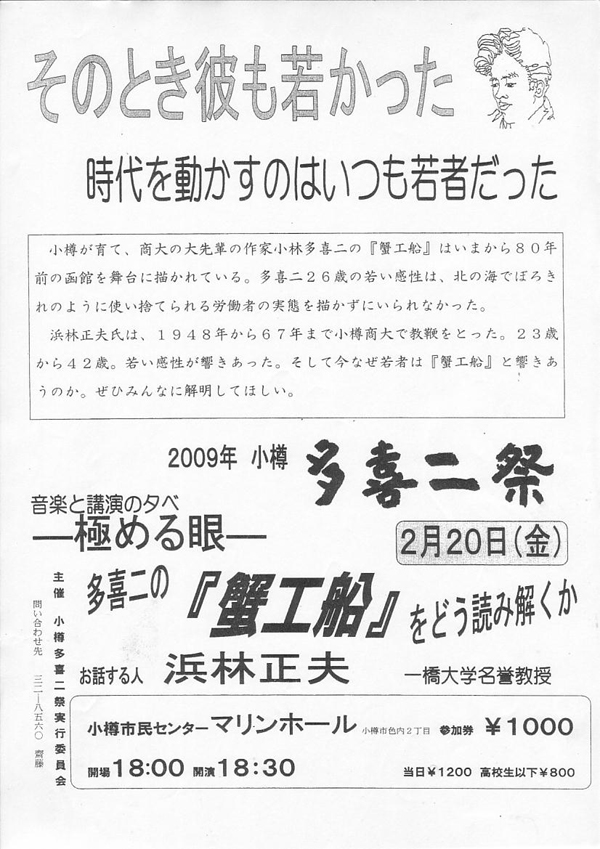 そのとき彼も若かった
時代を動かすのはいつも若者だった
小樽が育て、商大の大先輩の作家小林多喜二の『蟹工船』はいまから８０年
前の函館を舞台に描かれている。多喜二２６歳の若い感性は、北の海でぼろき
れのように使い捨てられる労働者の実態を描かずにいられなかった。
浜林正夫氏は、１９４８年から６７年まで小樽商大で教鞭をとった。２３歳
から４２歳。若い感性が響きあった。そして今なぜ若者は『蟹工船』と響きあ
うのか。ぜひみんなに解明してほしい。
2009年 小樽 多喜二祭
音楽と講演の夕べ
―極める眼―
2月20日(金)
多喜二の『蟹工船』をどう読み解くか
お話する人 浜林正夫 一橋大学名誉教授
小樽市民センターマリンホール 小樽市色内2丁目 参加券 ￥1000
開場18:00 開演18:30 当日￥1200 高校生以下￥800
主催 小樽多喜二祭実行委員会
問い合わせ先 三二―八五六〇 齋藤